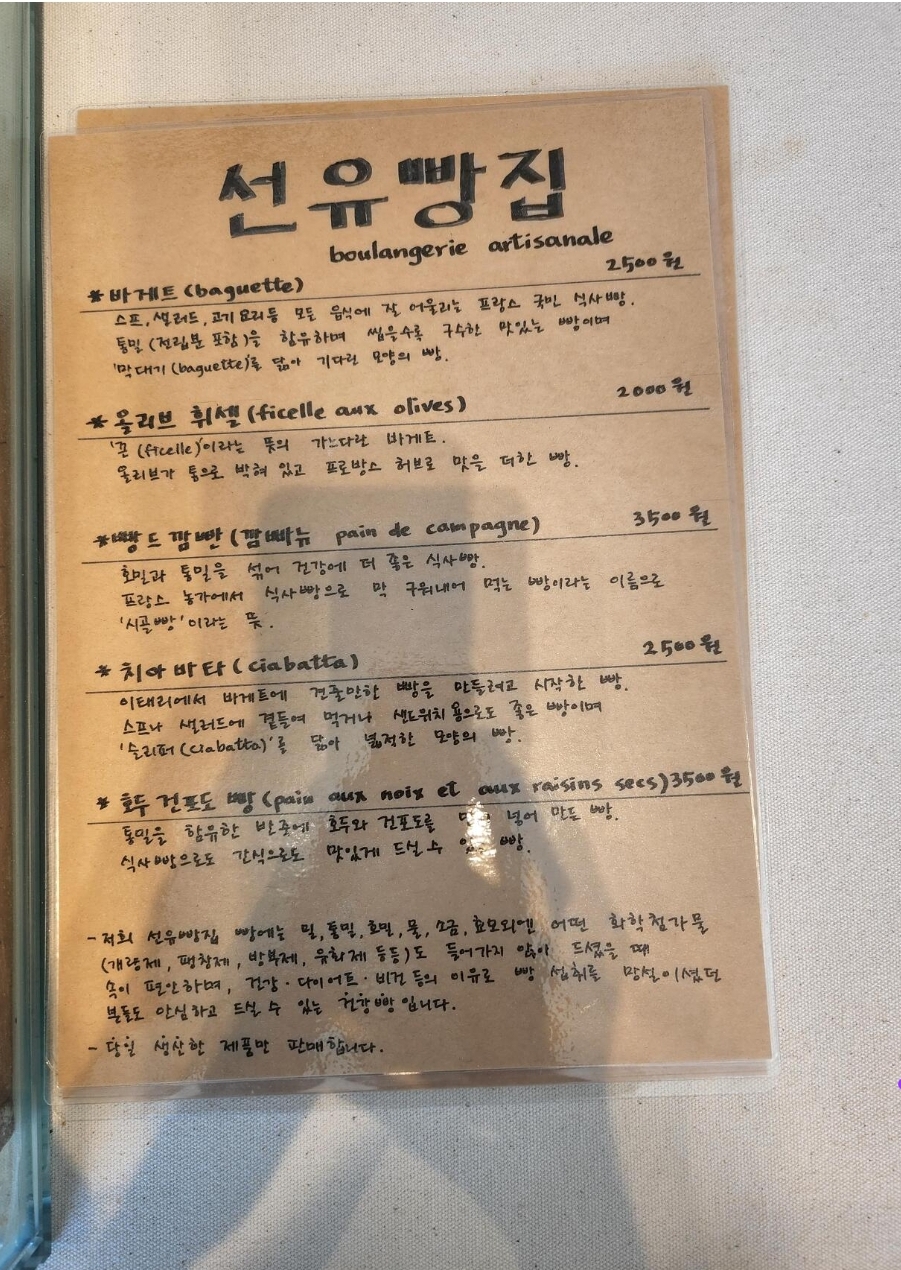 선유빵집
boulangerie artisanale
*바게트(baguette) 2500원
스프, 샐러드, 고기요리등 모든 음식에 잘 어울리는 프랑스 국민 식사빵.
통밀(전립분 포함)을 함유하며 씹을수록 구수한 맛있는 빵이며
'막대기(baguette)'를 닮아 기다란 모양의 빵.
*올리브 휘셀(ficelle aux olives) 2000원
'끈(ficelle)'이라는 뜻의 가느다란 바게트.
올리브가 통으로 박혀 있고 프로방스 허브로 맛을 더한 빵.
*빵드깜빤(깜빠뉴 pain de campagne) 3500원
호밀과 통밀을 섞어 건강에 더 좋은 식사빵.
프랑스 농가에서 식사빵으로 막 구워내어 먹는 빵이라는 이름으로
'시골빵'이라는 뜻.
*치아바타(ciabatta) 2500원
이태리에서 바게트에 견줄만한 빵을 만들려고 시작한 빵.
스프나 샐러드에 곁들여 먹거나 샌드위치용으로도 좋은 빵이며
'슬리퍼(ciabatta)'를 닮아 넓적한 모양의 빵.
*호두건포도빵(pain aux noix et aux raisins secs) 3500원
통밀을 함유한 반죽에 호두와 건포도를 넣어 만든 빵.
식사빵으로도 간식으로도 맛있게 드실수 있는 빵.
-저희 선유빵집 빵에는 밀, 통밀, 호밀, 물, 소금, 효모외엔 어떤 화학첨가물
(개량제, 팽창제, 방부제, 유화제 등등)도 들어가지 않아 드셨을 때
속이 편안하며, 건강·다이어트·비건 등의 이유로 빵 섭취를 망설이셨던
분들도 안심하고 드실 수 있는 건강빵입니다.
-당일 생산한 제품만 판매합니다.